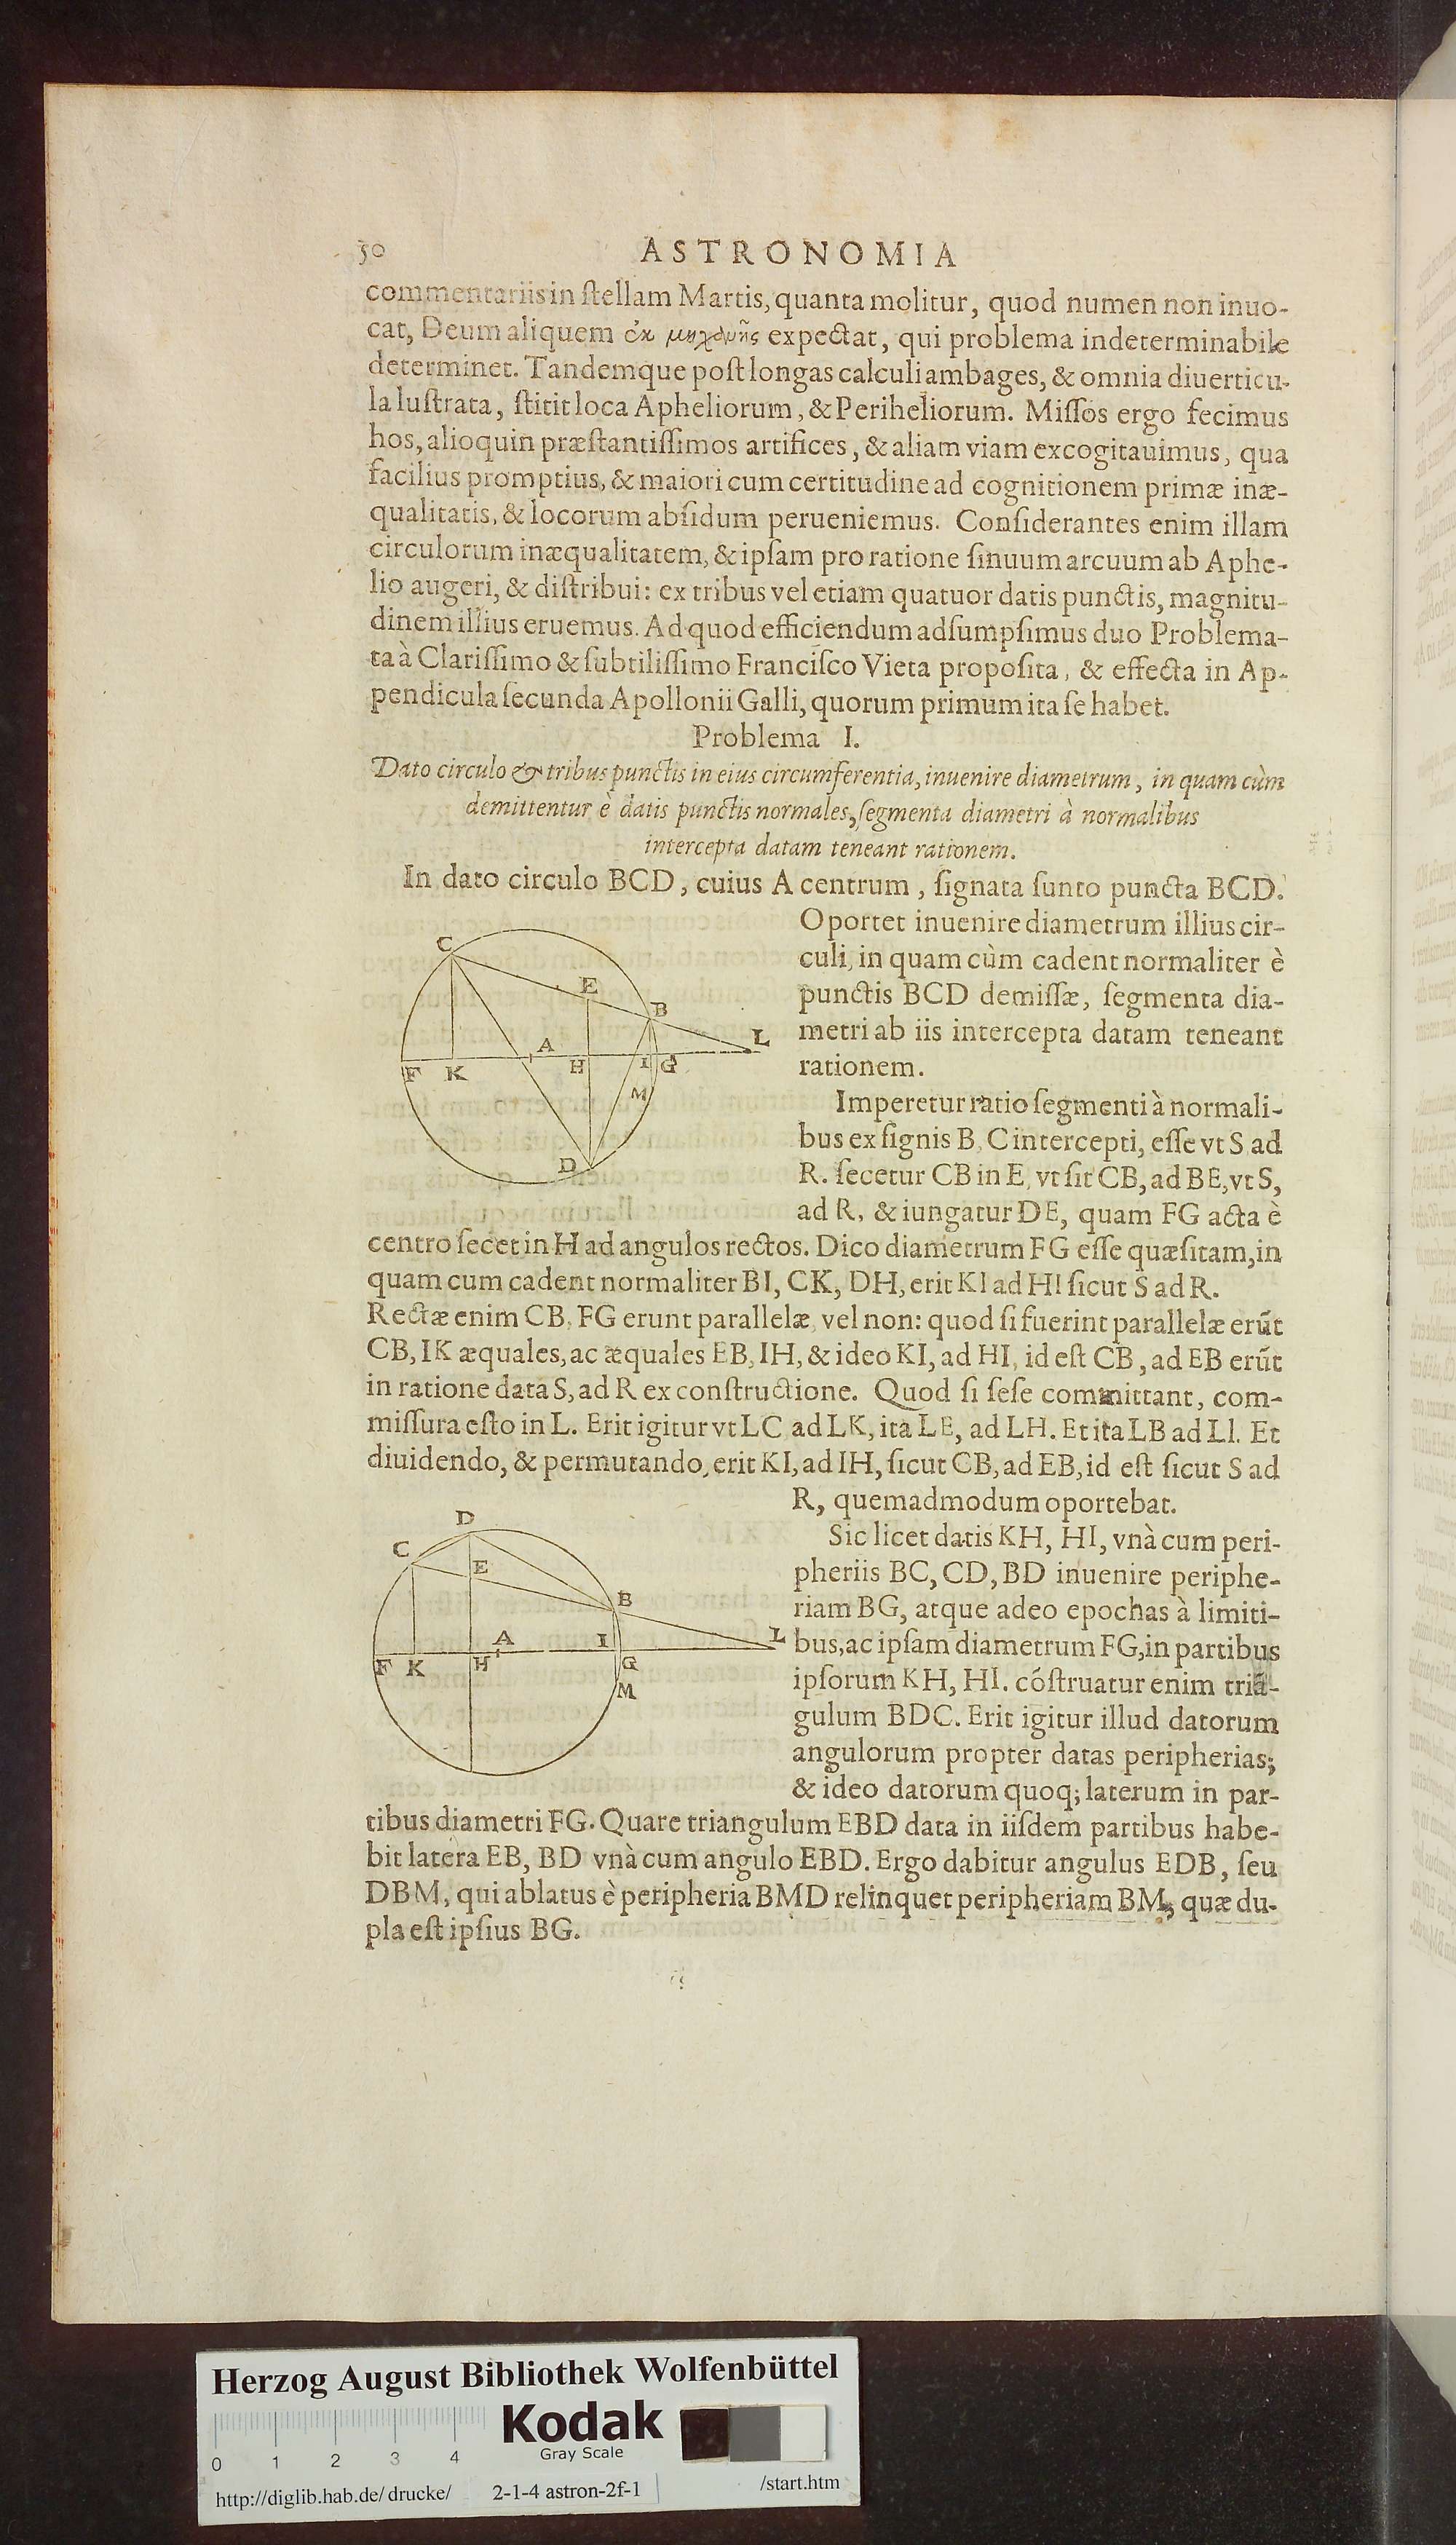 50 ASTRONOMIA
commentariis in ſtellam Martis, quanta molitur, quod numen non inuo-
cat, Deum aliquem ἐκ μηχανῆς expectat, qui problema indeterminabile
determinet. Tandemque poſt longas calculi ambages, & omnia diuerticu-
la luſtrata, ſtitit loca Apheliorum, & Periheliorum. Miſſos ergo fecimus
hos, alioquin præſtantiſſimos artifices, & aliam viam excogitauimus, qua
facilius promptius, & maiori cum certitudine ad cognitionem primæ inæ-
qualitatis, & locorum abſidum perueniemus. Conſiderantes enim illam
circulorum inæqualitatem, & ipſam pro ratione ſinuum arcuum ab Aphe-
lio augeri, & diſtribui: ex tribus vel etiam quatuor datis punctis, magnitu-
dinem illius eruemus. Ad quod efficiendum adſumpſimus duo Problema-
ta à Clariſſimo & ſubtiliſſimo Franciſco Vieta propoſita, & effecta in Ap-
pendicula ſecunda Apollonii Galli, quorum primum ita ſe habet.
Problema I.
Dato circulo & tribus punctis in eius circumferentia, inuenire diametrum, in quam cùm
demittentur è datis punctis normales, ſegmenta diametri à normalibus
intercepta datam teneant rationem.
In dato circulo BCD, cuius A centrum, ſignata ſunto puncta BCD.
Oportet inuenire diametrum illius cir-
culi, in quam cùm cadent normaliter è
punctis BCD demiſſæ, ſegmenta dia-
metri ab iis intercepta datam teneant
rationem.
C
E
B
L
A
F K H I G
M
D
Imperetur ratio ſegmenti à normali-
bus ex ſignis B, C intercepti, eſſe vt S ad
R. ſecetur CB in E, vt ſit CB, ad BE, vt S,
ad R, & iungatur DE, quam FG acta è
centro ſecet in H ad angulos rectos. Dico diametrum FG eſſe quæſitam, in
quam cum cadent normaliter BI, CK, DH, erit KI ad HI ſicut S ad R.
Rectæ enim CB, FG erunt parallelæ, vel non: quod ſi fuerint parallelæ erũt
CB, IK æquales, ac æquales EB, IH, & ideo KI, ad HI, id eſt CB, ad EB erũt
in ratione data S, ad R ex conſtructione. Quod ſi ſeſe committant, com-
miſſura eſto in L. Erit igitur vt LC ad LK, ita LE, ad LH. Et ita LB ad LI. Et
diuidendo, & permutando, erit KI, ad IH, ſicut CB, ad EB, id eſt ſicut S ad
R, quemadmodum oportebat.
D
C
E
B
A I L
F K H G
M
Sic licet datis KH, HI, vnà cum peri-
pheriis BC, CD, BD inuenire periphe-
riam BG, atque adeo epochas à limiti-
bus, ac ipſam diametrum FG, in partibus
ipſorum KH, HI. cõſtruatur enim triã-
gulum BDC. Erit igitur illud datorum
angulorum propter datas peripherias;
& ideo datorum quoq; laterum in par-
tibus diametri FG. Quare triangulum EBD data in iiſdem partibus habe-
bit latera EB, BD vnà cum angulo EBD. Ergo dabitur angulus EDB, ſeu
DBM, qui ablatus è peripheria BMD relinquet peripheriam BM, quæ du-
pla eſt ipſius BG.
Herzog August Bibliothek Wolfenbüttel
Kodak
Gray Scale
0 1 2 3 4
http://diglib.hab.de/drucke/ 2-1-4 astron-2f-1 /start.htm